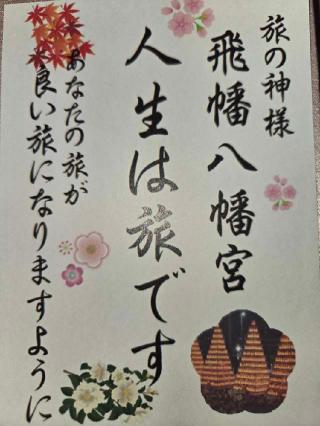 旅の神様
飛幡八幡宮
人生は旅です
あなたの旅が
良い旅になりますように